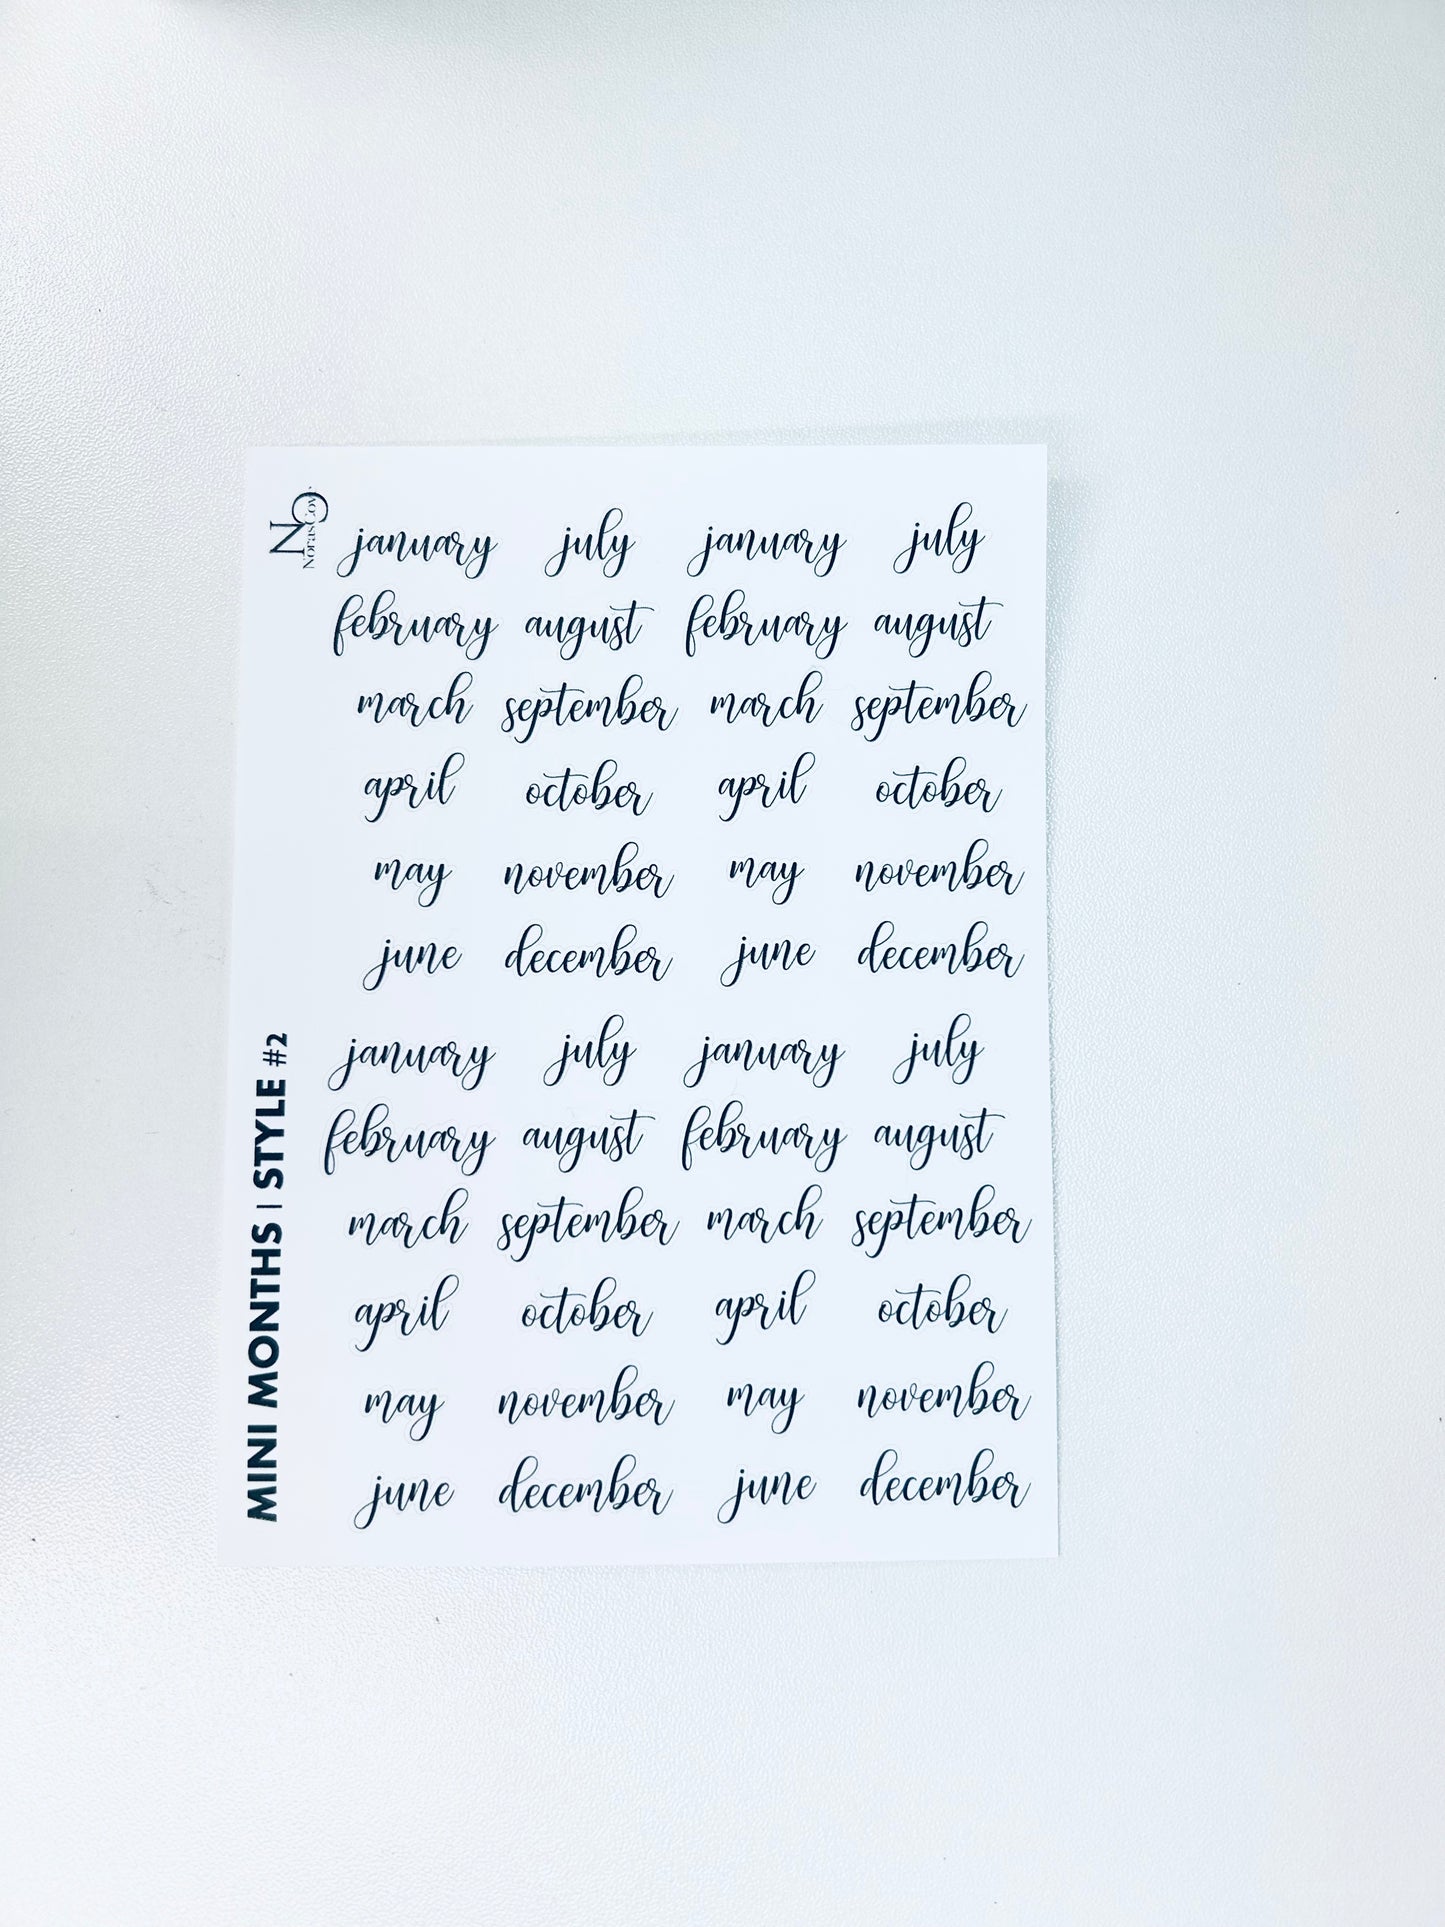 january july january july
february august february august
march september march september
april october april october
may november may november
june december june december
january july january july
february august february august
march september march september
april october april october
may november may november
june december june december
MINI MONTHS | STYLE #2
NC